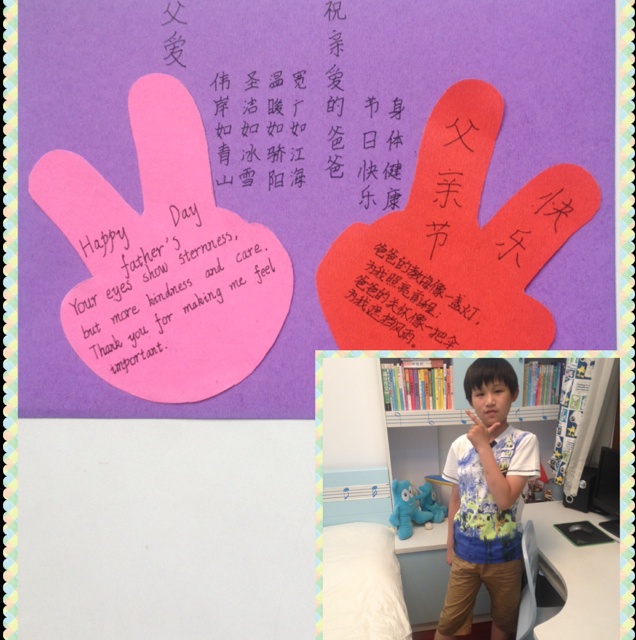 父爱
伟岸如青山
圣洁如冰雪
温暖如骄阳
宽广如江海
祝亲爱的爸爸
节日快乐
身体健康
Happy Day
father's
Your eyes show sternness,
but more kindness and care.
Thank you for making me feel
important.
父亲节
快乐
爸爸的教诲像一盏灯,
为我照亮前程;
爸爸的关怀像一把伞
为我遮挡风雨.